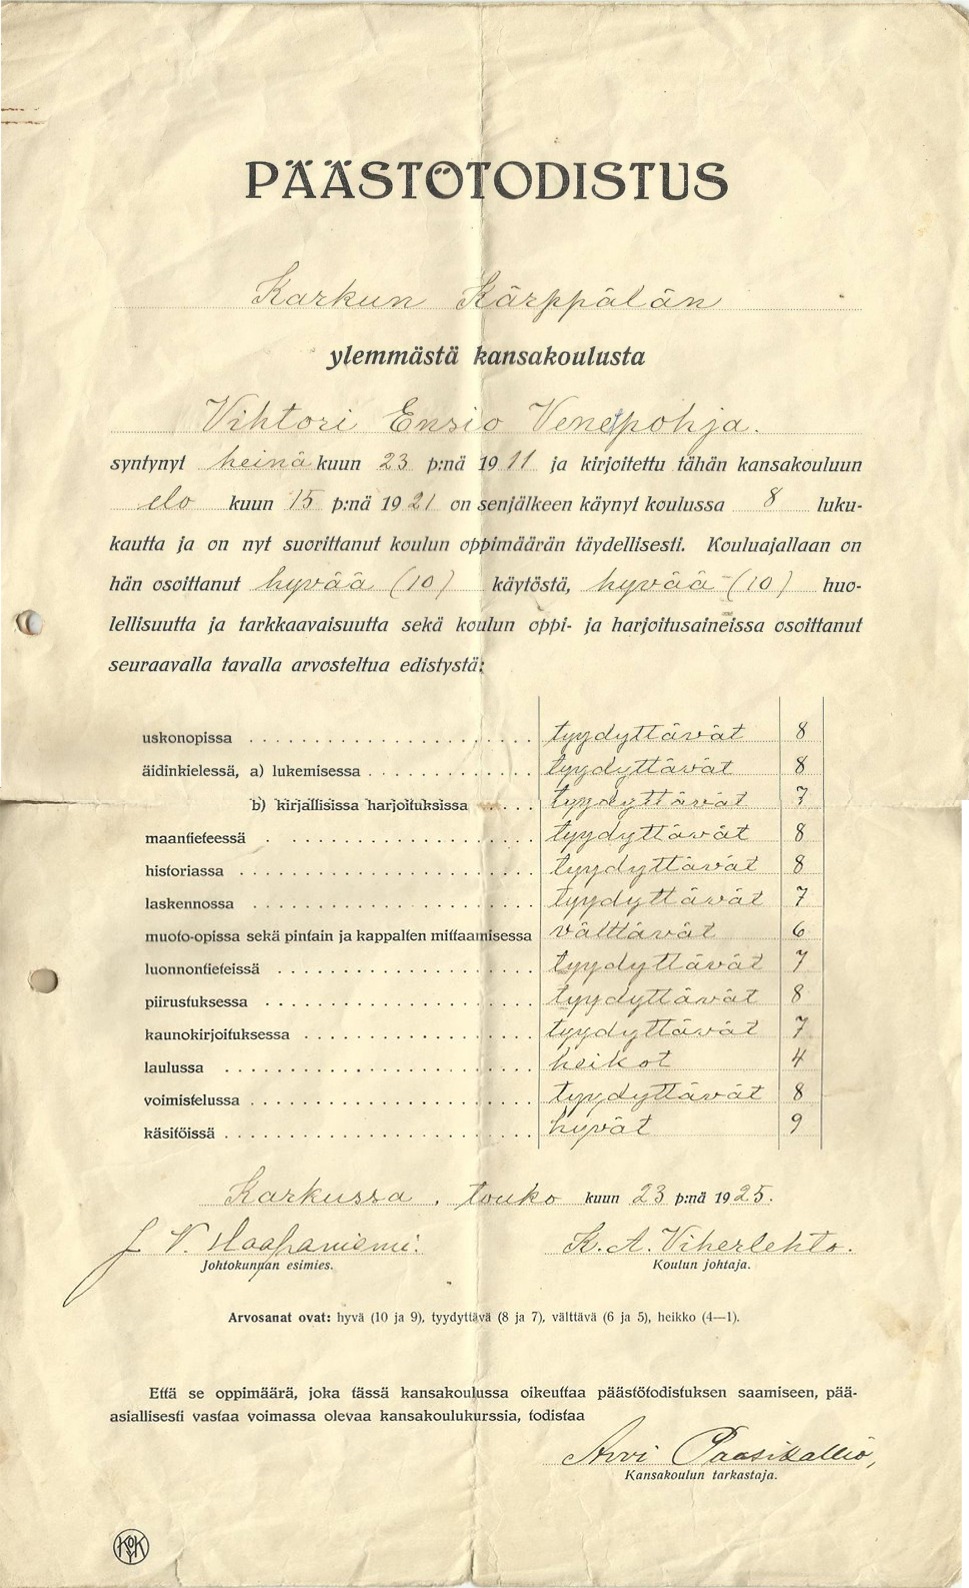 PÄÄSTÖTODISTUS
Karkun Kärppälän
ylemmästä kansakoulusta
Vihtori Ensio Venepohja.
syntynyt heinä kuun 23 p:nä 1911 ja kirjoitettu tähän kansakouluun
elo kuun 15 p:nä 1921 on senjälkeen käynyt koulussa 8 luku-
kautta ja on nyt suorittanut koulun oppimäärän täydellisesti. Kouluajallaan on
hän osoittanut hyvää (10) käytöstä, hyvää (10) huo-
lellisuutta ja tarkkaavaisuutta sekä koulun oppi- ja harjoitusaineissa osoittanut
seuraavalla tavalla arvosteltua edistystä:
uskonopissa tyydyttävät 8
äidinkielessä, a) lukemisessa tyydyttävät 8
b) kirjallisissa harjoituksissa tyydyttävät 7
maantieteessä tyydyttävät 8
historiassa tyydyttävät 8
laskennossa tyydyttävät 7
muoto-opissa sekä pintain ja kappalten mittaamisessa välttävät 6
luonnontieteissä tyydyttävät 7
piirustuksessa tyydyttävät 8
kaunokirjoituksessa tyydyttävät 7
laulussa heikot 4
voimistelussa tyydyttävät 8
käsitöissä hyvät 9
Karkussa. touko kuun 23 p:nä 1925.
J. V. Haapaniemi. K. A. Viherlehto.
Johtokunnan esimies. Koulun johtaja.
Arvosanat ovat: hyvä (10 ja 9), tyydyttävä (8 ja 7), välttävä (6 ja 5), heikko (4—1).
Että se oppimäärä, joka tässä kansakoulussa oikeuttaa päästötodistuksen saamiseen, pää-
asiallisesti vastaa voimassa olevaa kansakoulukurssia, todistaa
Arvi Paasikallio,
Kansakoulun tarkastaja.
KOYK